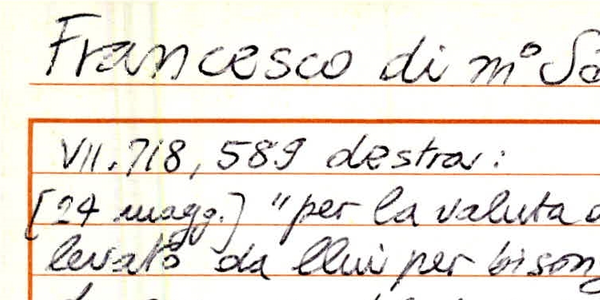 Francesco di m°
VII.718, 589 destra:
[24 magg.] "per la valuta
levato da llui per